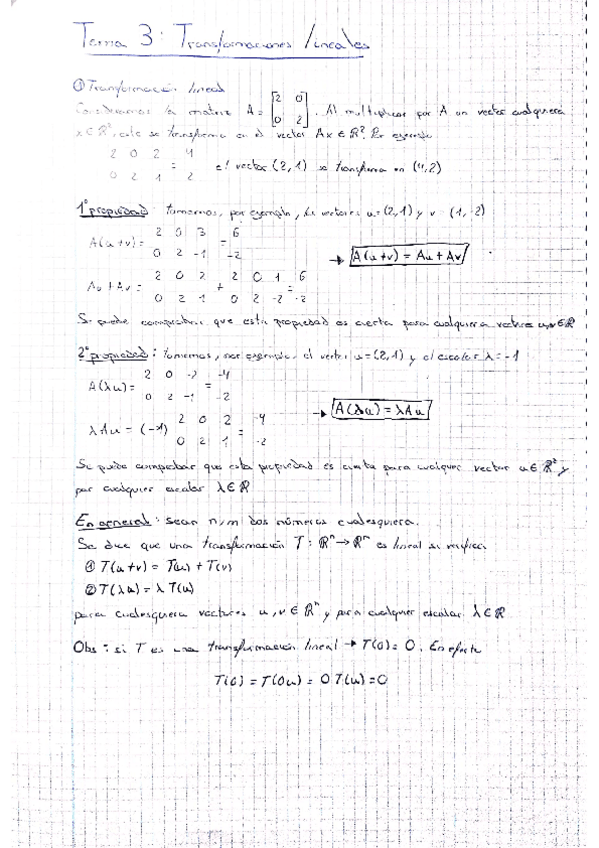 Tema 3: Transformaciones lineales
① Transformación lineal
Consideramos la matriz A = [2 0
0 2]. Al multiplicar por A un vector cualquiera
x ∈ R², este se transforma en el vector Ax ∈ R². Por ejemplo
2 0 2 = 4
0 2 1 2 el vector (2,1) se transforma en (4,2)
1ª propiedad: tomemos, por ejemplo, los vectores u=(2,1) y v=(1,-2)
A(u+v) = 2 0 3 = 6
0 2 -1 -2
→ A(u+v) = Au + Av
Au + Av = 2 0 2 + 2 0 1 = 6
0 2 1 0 2 -2 -2
Se puede comprobar que esta propiedad es cierta para cualquiera vectores u,v ∈ R
2ª propiedad: tomemos, por ejemplo, el vector u=(2,1) y el escalar λ=-1
A(λu) = 2 0 -2 = -4
0 2 -1 -2
→ A(λu) = λAu
λAu = (-1) 2 0 2 = -4
0 2 1 -2
Se puede comprobar que esta propiedad es cierta para cualquier vector u ∈ R² y
por cualquier escalar λ ∈ R
En general: sean n,m dos números cualesquiera.
Se dice que una transformación T: Rⁿ → Rᵐ es lineal si verifica
① T(u+v) = T(u) + T(v)
② T(λu) = λ T(u)
para cualesquiera vectores u,v ∈ Rⁿ y para cualquier escalar λ ∈ R
Obs: si T es una transformación lineal → T(0) = 0. En efecto
T(0) = T(0u) = 0 T(u) = 0